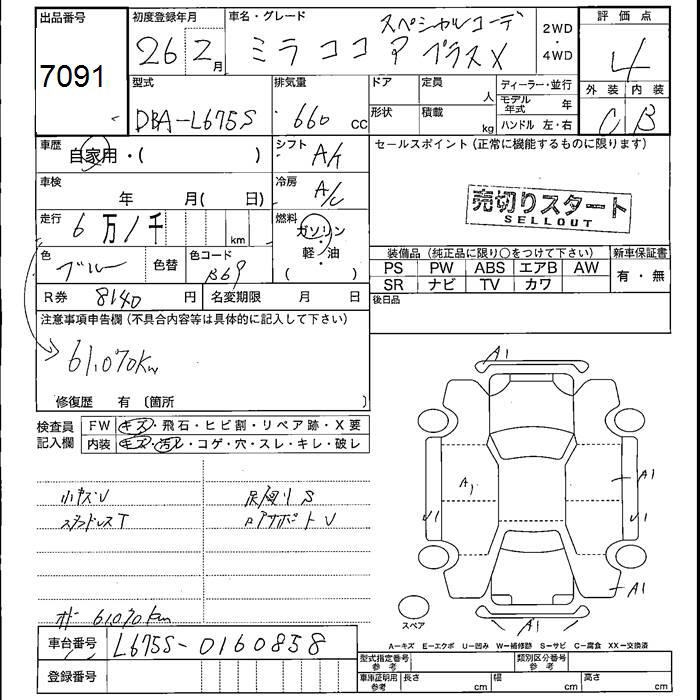 出品番号
7091
初度登録年月
26 2月
車名・グレード
スペシャルコーデ
ミラ ココア プラスX
2WD
・
4WD
評価点
4
外装 内装
C B
型式
DBA-L675S
排気量
660 cc
ドア
形状
定員 人
積載 kg
ディーラー・並行
モデル年式 年
ハンドル 左・右
車歴 自家用・( )
シフト A/t
車検 年 月( 日)
冷房 A/C
走行 6万1千 km
燃料 ガソリン
・
軽・油
( )
色 ブルー 色替
色コード B69
R券 8140 円
名変期限 月 日
セールスポイント (正常に機能するものに限ります)
売切りスタート
SELLOUT
装備品 (純正品に限り○をつけて下さい)
PS PW ABS エアB AW
SR ナビ TV カワ
新車保証書
有・無
後日品
注意事項申告欄 (不具合内容等は具体的に記入して下さい)
61,070Km
修復歴 有 〔箇所 〕
検査員記入欄
FW キズ・飛石・ヒビ割・リペア跡・X要
内装 キズ・汚レ・コゲ・穴・スレ・キレ・破レ
小キズU
スタッドレスT
足廻りS
61,070Km
A1
A1
A1
A1
A1
スペア
A-キズ E-エクボ U-凹み W-補修跡 S-サビ C-腐食 XX-交換済
車台番号 L675S-0160858
登録番号
型式指定番号 参考
類別区分番号 参考
車庫証明用 参考 長さ cm 幅 cm 高さ cm